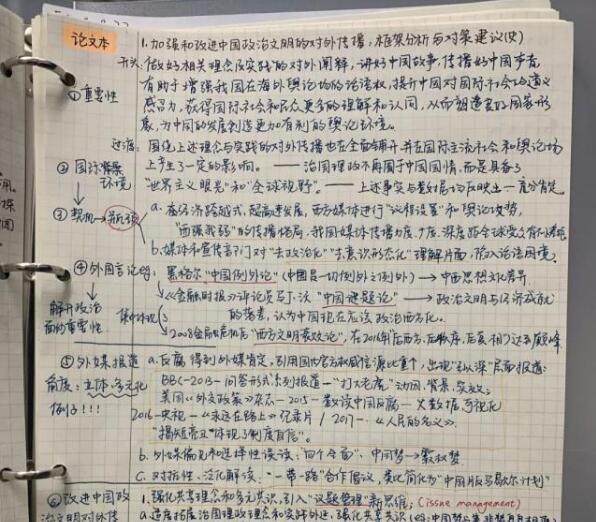 论文本
1.加强和改进中国政治文明的对外传播,框架分析与对策建议(史)
开头:做好相关理念及实践的对外阐释,讲好中国故事,传播好中国声音,
①重要性
有助于增强我国在海外舆论场的话语权,提升中国对国际社会的道义
感召力,获得国际社会和民众更多的理解和认同,从而塑造良好国家形
象,为中国的发展创造更加有利的舆论环境。
过渡:围绕上述理念与实践的对外传播也在全面铺开并在国际主流社会和舆论场
②国际背景
上产生了一定的影响。——治国理政不再囿于中国国情,而是具备了
环境
"世界主义眼光"和"全球视野"。——上述事实与数据均反映出
③契机
a.在经济跨越式、超高速发展,西方媒体进行"议程设置"和舆论攻势,
"西强我弱"的传播格局,我国媒体传播力度、广度、深度
b.媒体和宣传部门对"去政治化""去意识形态化"理解片面,陷入话语困境。
④外国言论eg:
黑格尔"中国例外论"(中国是一切例外之例外)→中西思想文化差异
解开政治
《金融时报》评论员 "中国谜题论"→政治文明与经济成就
面的重要性
集中体现
的落差,认为中国现在应该政治西方化。
2008金融危机后"西方文明衰败论",在2016年"后西方、后秩序、后真相"
⑤外媒报道
a.反腐得到外媒肯定,引用国内官方权威信源比重个,出现"纵深"层面报道:
角度:立体、多元化
BBC-2013-问答形式系列报道-"打大老虎"动因、背景、实效;
例子!!!
美国《外交政策》杂志-2015-数读中国反腐-大数据可视化
2016-央视-《永远在路上》纪录片/2017-《人民的名义》.
"揭短亮丑"体现了制度自信".
b.外媒偏见和选择性误读:"四个全面",中国梦→霸权梦
c.对抗性、泛化解读:"一带一路"合作倡议,类比简化为"中国版马歇尔计划"
⑥改进中国政
1.强化共享理念和多元共识,引入"议题管理"新思维;(issue management)
治文明对外传
a.适度拓展治国理政理念和实践外延,强化共享共识